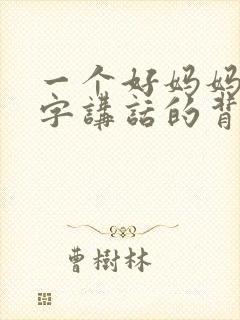 一个好妈妈
字講話的背
曹樹林